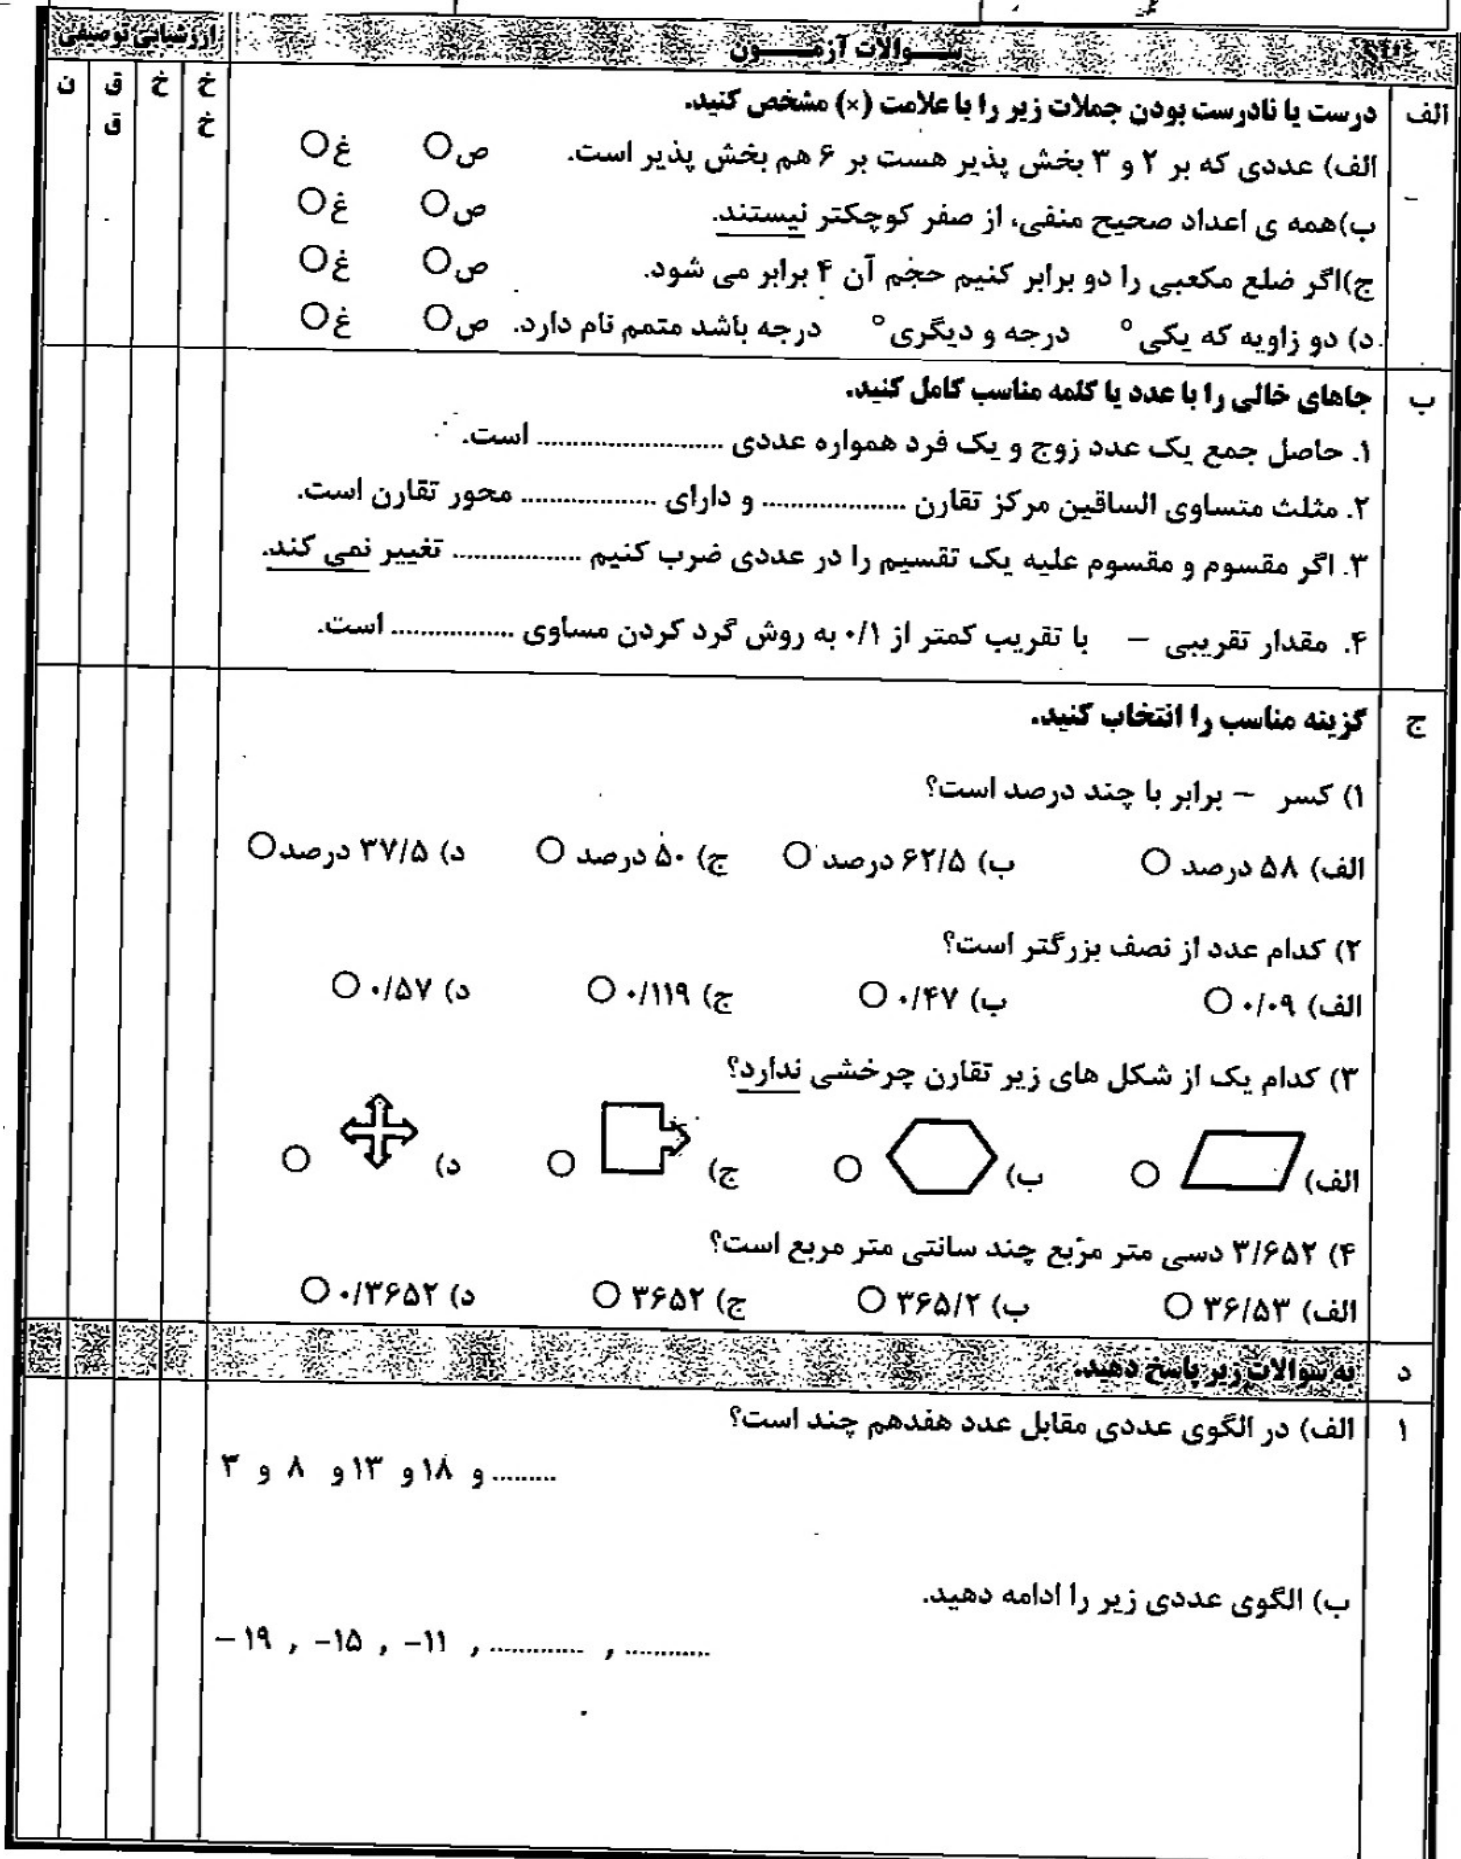 سـوالات آزمـون
ارزشیابی توصیفی
خ خ
خ
ق ق
ن
الف
درست یا نادرست بودن جملات زیر را با علامت (×) مشخص کنید.
الف) عددی که بر ۲ و ۳ بخش پذیر هست بر ۶ هم بخش پذیر است. ص غ
ب)همه ی اعداد صحیح منفی، از صفر کوچکتر نیستند. ص غ
ج)اگر ضلع مکعبی را دو برابر کنیم حجم آن ۴ برابر می شود. ص غ
د) دو زاویه که یکی ° درجه و دیگری ° درجه باشد متمم نام دارد. ص غ
ب
جاهای خالی را با عدد یا کلمه مناسب کامل کنید.
۱. حاصل جمع یک عدد زوج و یک فرد همواره عددی .......................... است.
۲. مثلث متساوی الساقین مرکز تقارن .................... و دارای ................... محور تقارن است.
۳. اگر مقسوم و مقسوم علیه یک تقسیم را در عددی ضرب کنیم .................. تغییر نمی کند.
۴. مقدار تقریبی – با تقریب کمتر از ۰/۱ به روش گرد کردن مساوی ................. است.
ج
گزینه مناسب را انتخاب کنید.
۱) کسر – برابر با چند درصد است؟
الف) ۵۸ درصد ب) ۶۲/۵ درصد ج) ۵۰ درصد د) ۳۷/۵ درصد
۲) کدام عدد از نصف بزرگتر است؟
الف) ۰/۰۹ ب) ۰/۴۷ ج) ۰/۱۱۹ د) ۰/۵۷
۳) کدام یک از شکل های زیر تقارن چرخشی ندارد؟
الف) ب) ج) د)
۴) ۳/۶۵۲ دسی متر مربع چند سانتی متر مربع است؟
الف) ۳۶/۵۳ ب) ۳۶۵/۲ ج) ۳۶۵۲ د) ۰/۳۶۵۲
د
به سوالات زیر پاسخ دهید.
۱
الف) در الگوی عددی مقابل عدد هفدهم چند است؟
۳ و ۸ و ۱۳ و ۱۸ و .........
ب) الگوی عددی زیر را ادامه دهید.
–۱۹ , –۱۵ , –۱۱ , ............. , ............